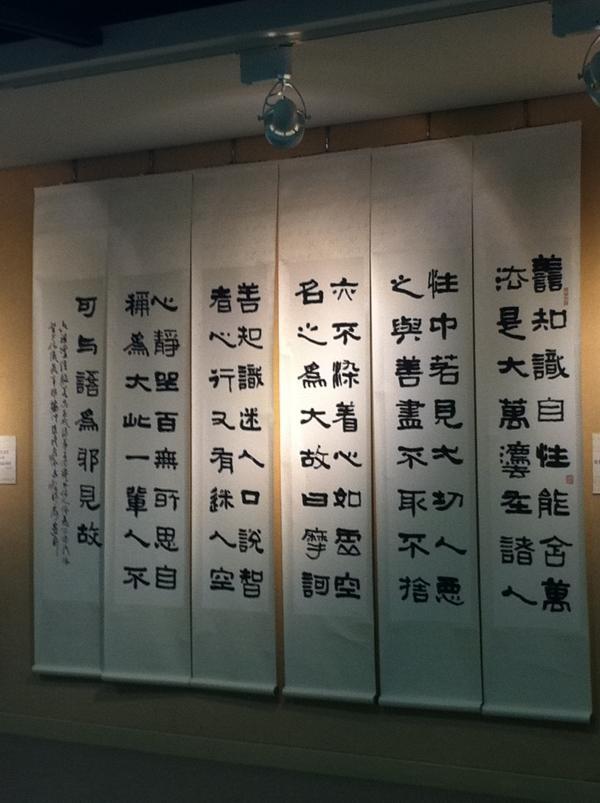 善知識自性能含萬
法是大萬灋在諸人
性中若見一切人惡
之與善盡不取不捨
亦不染着心如虛空
名之為大故曰摩訶
善知識迷人口說智
者心行又有迷人空
心靜坐百無所思自
稱為大此一輩人不
可与語為邪見故